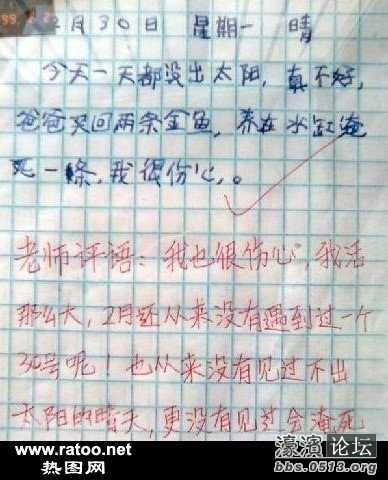 2月30日 星期一 晴
今天一天都没出太阳,真不好,
爸爸买回两条金鱼,养在水缸淹
死一條,我很伤心,。
老师评语:我也很伤心,我活
那么大,2月还从来没有遇到过一个
30号呢!也从来没有见过不出
太阳的晴天,更没有见过会淹死
www.ratoo.net
热图网
濠滨论坛
bbs.0513.org